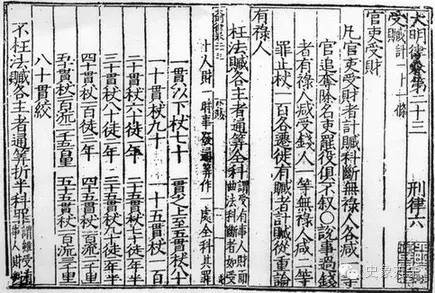 大明律卷第二十三 刑律六
受贓計一十一條
官吏受財
凡官吏受財者計贓科斷無祿人各減一等
官追奪除名吏罷役俱不叙○說事過錢
者有祿人減受錢人一等無祿人減二等
罪止杖一百各遷徙有贓者計贓從重論
有祿人
枉法贓各主者通算全科 謂受有事人財而曲法科斷者如受
十人財一時事發通算作一處全科其罪
一貫以下杖七十 一貫之上至五貫杖八十
一十貫杖九十 一十五貫杖一百
二十貫杖六十徒一年 二十五貫杖七十徒一年半
三十貫杖八十徒二年 三十五貫杖九十徒二年半
四十貫杖一百徒三年 四十五貫杖一百流二千里
五十貫杖一百流二千五百里 五十五貫杖一百流三千里
八十貫絞
不枉法贓各主者通算折半科罪 謂雖受有事人財